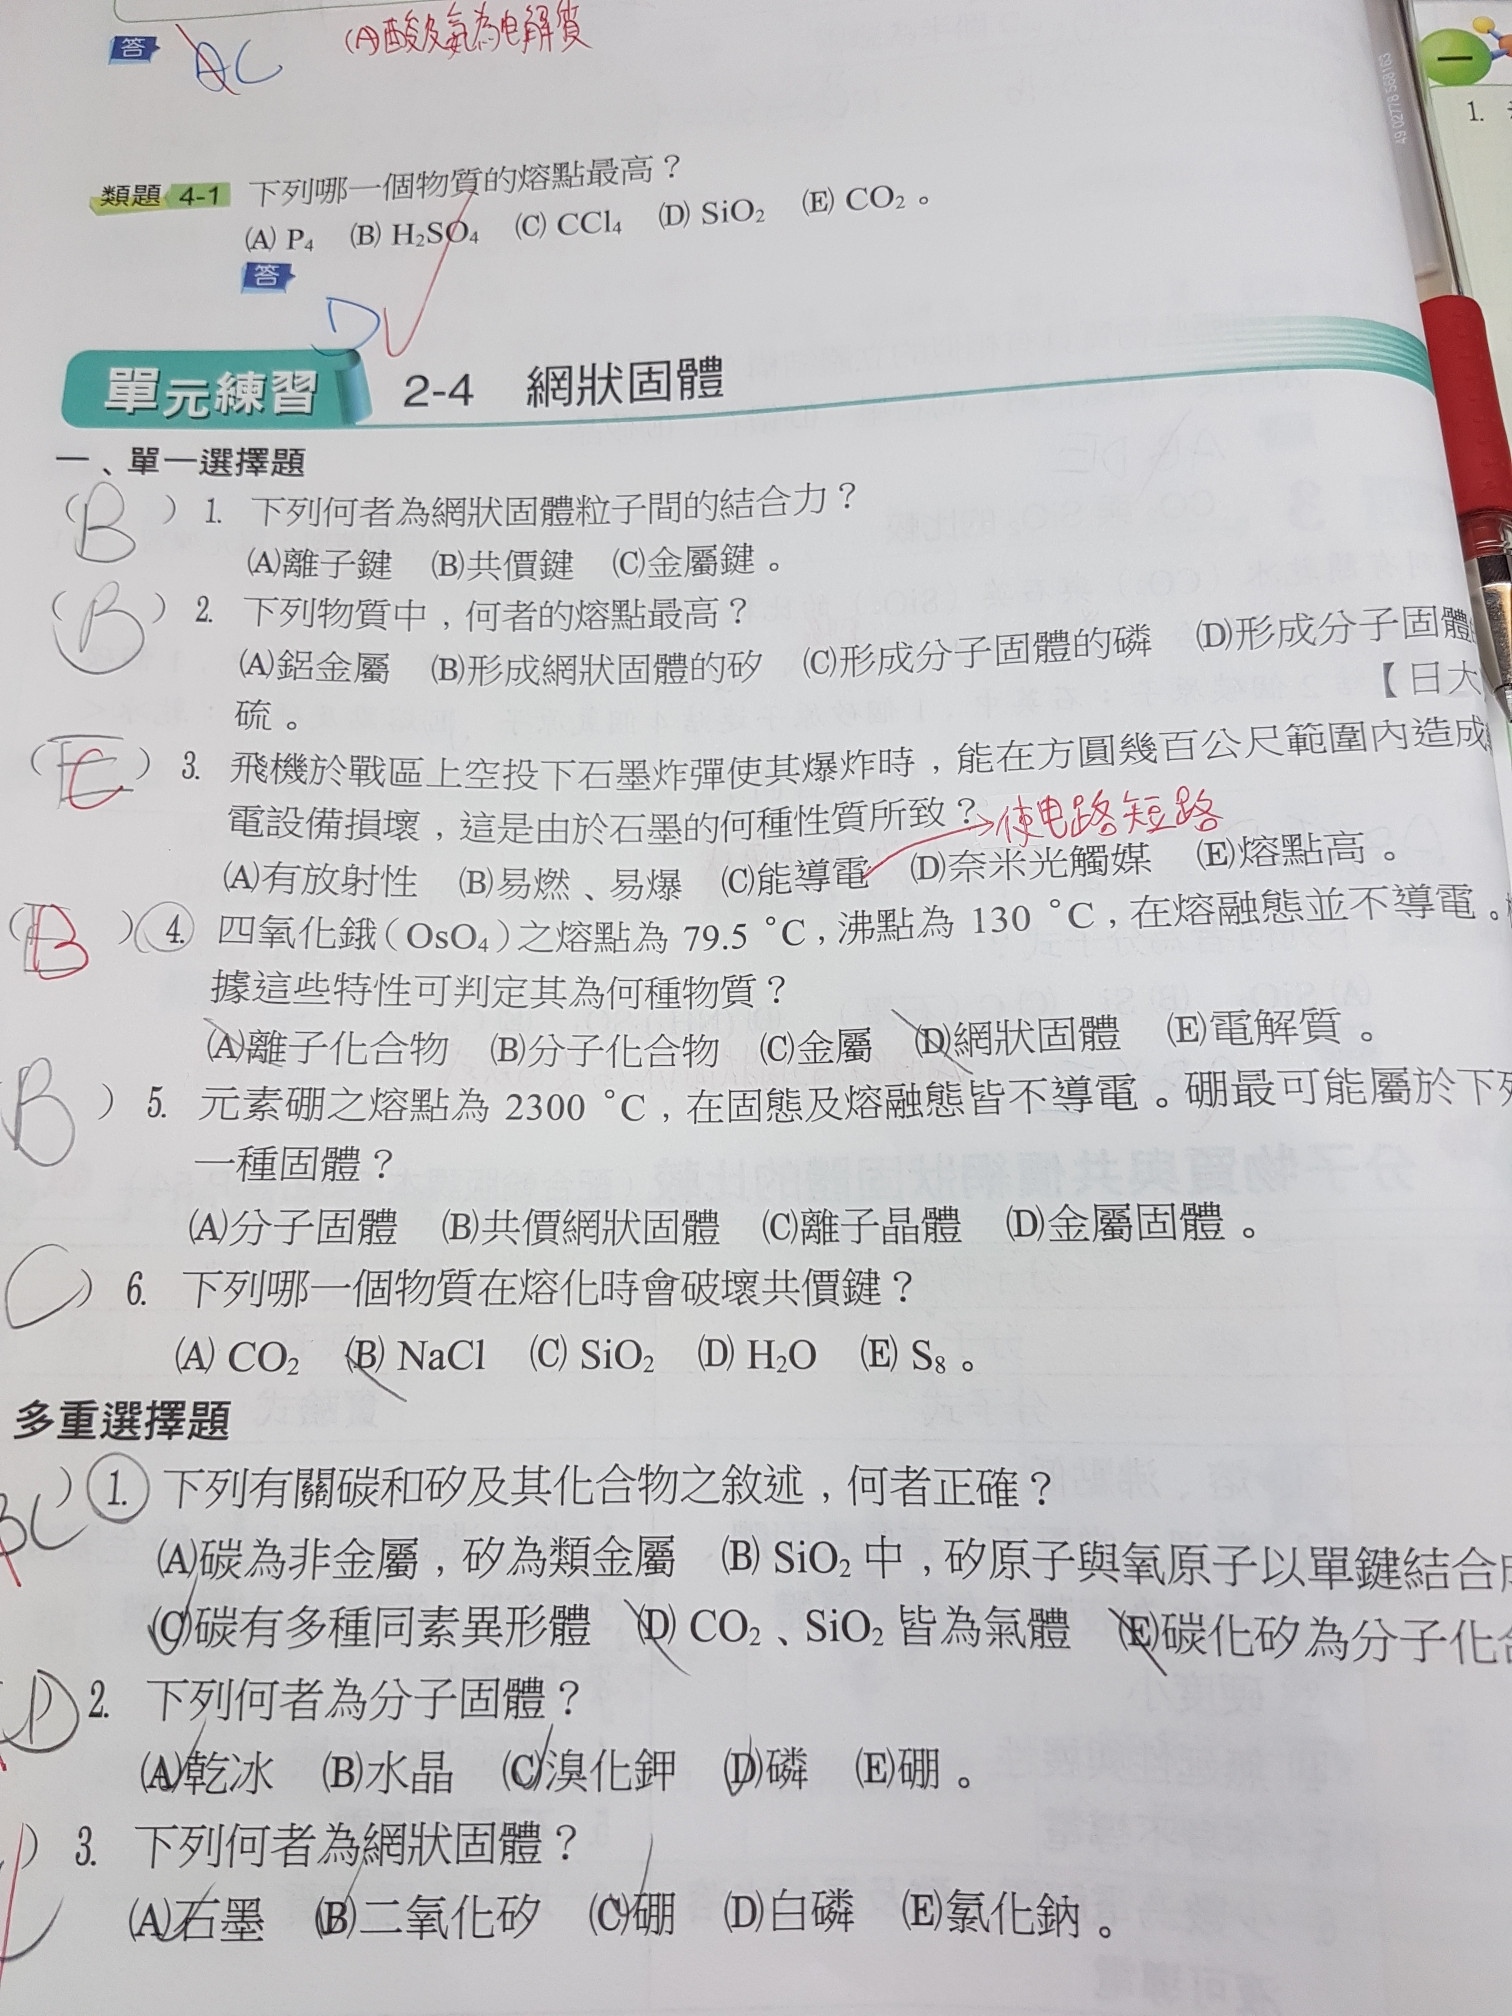 答 AC (A)酸及氨為电解質
類題 4-1 下列哪一個物質的熔點最高？
(A) P₄ (B) H₂SO₄ (C) CCl₄ (D) SiO₂ (E) CO₂。
答
D
單元練習 2-4 網狀固體
一、單一選擇題
(B) 1. 下列何者為網狀固體粒子間的結合力？
(A)離子鍵 (B)共價鍵 (C)金屬鍵。
(B) 2. 下列物質中，何者的熔點最高？
(A)鋁金屬 (B)形成網狀固體的矽 (C)形成分子固體的磷 (D)形成分子固體
硫。 【日大
(C) 3. 飛機於戰區上空投下石墨炸彈使其爆炸時，能在方圓幾百公尺範圍內造成
電設備損壞，這是由於石墨的何種性質所致？ 使电路短路
(A)有放射性 (B)易燃、易爆 (C)能導電 (D)奈米光觸媒 (E)熔點高。
(B) 4. 四氧化鋨（OsO₄）之熔點為 79.5 °C，沸點為 130 °C，在熔融態並不導電。
據這些特性可判定其為何種物質？
(A)離子化合物 (B)分子化合物 (C)金屬 (D)網狀固體 (E)電解質。
B) 5. 元素硼之熔點為 2300 °C，在固態及熔融態皆不導電。硼最可能屬於下列
一種固體？
(A)分子固體 (B)共價網狀固體 (C)離子晶體 (D)金屬固體。
C) 6. 下列哪一個物質在熔化時會破壞共價鍵？
(A) CO₂ (B) NaCl (C) SiO₂ (D) H₂O (E) S₈。
多重選擇題
BC) 1. 下列有關碳和矽及其化合物之敘述，何者正確？
(A)碳為非金屬，矽為類金屬 (B) SiO₂ 中，矽原子與氧原子以單鍵結合
(C)碳有多種同素異形體 (D) CO₂、SiO₂ 皆為氣體 (E)碳化矽為分子化合
D) 2. 下列何者為分子固體？
(A)乾冰 (B)水晶 (C)溴化鉀 (D)磷 (E)硼。
) 3. 下列何者為網狀固體？
(A)石墨 (B)二氧化矽 (C)硼 (D)白磷 (E)氯化鈉。
一
1.
49 02778 568163